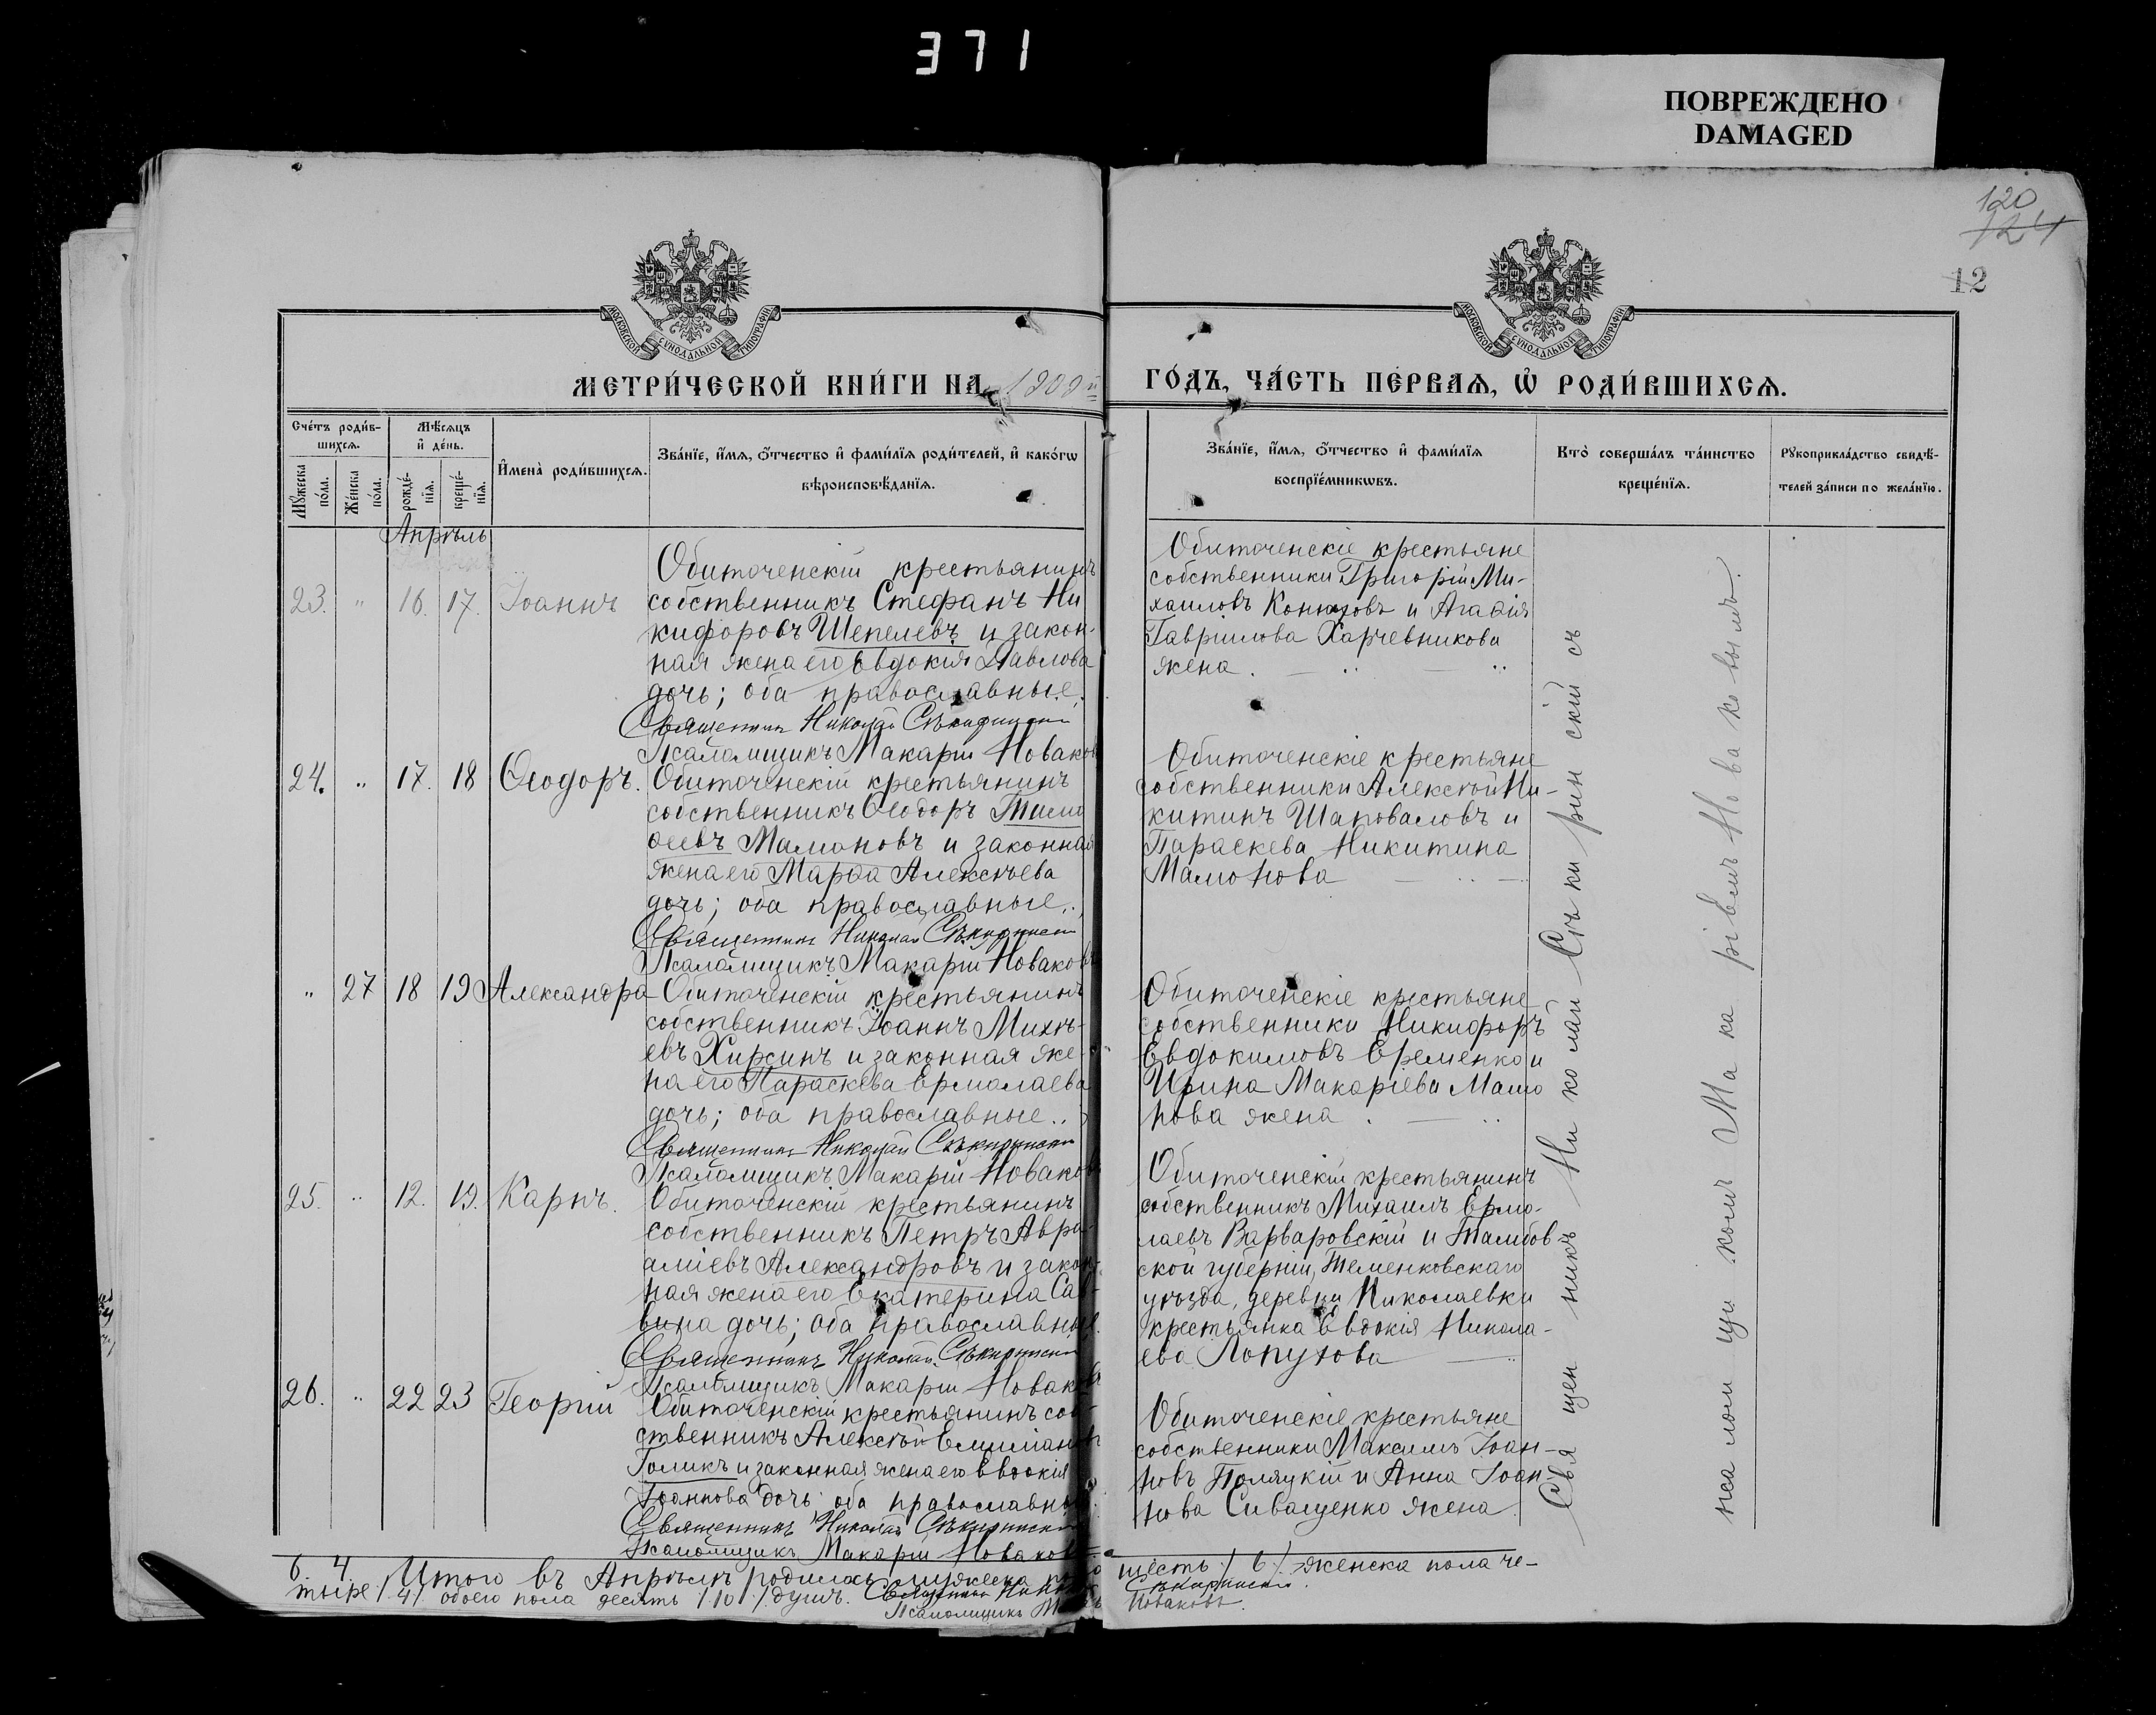 371
ПОВРЕЖДЕНО
DAMAGED
120
124
12
МОСКОВСКОЙ СУНОДАЛЬНОЙ ТИПОГРАФІИ
МОСКОВСКОЙ СУНОДАЛЬНОЙ ТИПОГРАФІИ
МЕТРИ́ЧЕСКОЙ КНИ́ГИ НА 1909й ГО́ДЪ, ЧА́СТЬ ПЕ́РВАѦ, Ѡ҆ РОДИ́ВШИХСѦ.
Сче́тъ роди́в-
шихсѧ.
Мѣ́сѧцъ
и҆ де́нь.
Мꙋ́жеска
по́ла.
Же́нска
по́ла.
рожде́-
нїѧ.
креще́-
нїѧ.
И҆мена̀ роди́вшихсѧ.
Зва́нїе, и҆́мѧ, ѻ҆́тчество и҆ фами́лїѧ роди́телей, и҆ како́гѡ
вѣроисповѣ́данїѧ.
Зва́нїе, и҆́мѧ, ѻ҆́тчество и҆ фами́лїѧ
воспрїе́мникѡвъ.
Кто̀ соверша́лъ та́инство
креще́нїѧ.
Рꙋкоприкла́дство свидѣ́-
телей за́писи по жела́нїю.
Апрѣль
23. " 16. 17. Іоаннъ
Обиточенскій крестьянинъ
собственникъ Стефанъ Ни
кифоровъ Шепелевъ и закон-
ная жена его Евдокія Павлова
дочь; оба православные.
Священникъ Николай Сѣкиринскій
Псаломщикъ Макарій Новаковъ
Обиточенскіе крестьяне
собственники Григорій Ми-
хаиловъ Конюховъ и Агаѳія
Гавріилова Харчевникова
жена.
24. " 17. 18 Ѳеодоръ.
Обиточенскій крестьянинъ
собственникъ Ѳеодоръ Тимо
ѳеевъ Мамоновъ и законная
жена его Марѳа Алексѣева
дочь; оба православные.
Священникъ Николай Сѣкиринскій
Псаломщикъ Макарій Новаковъ
Обиточенскіе крестьяне
собственники Алексѣй Ни-
китинъ Шаповаловъ и
Параскева Никитина
Мамонова
" 27 18 19 Александра
Обиточенскій крестьянинъ
собственникъ Іоаннъ Михѣ-
евъ Хирсинъ и законная же-
на его Параскева Ермолаева
дочь; оба православные.
Священникъ Николай Сѣкиринскій
Псаломщикъ Макарій Новаковъ
Обиточенскіе крестьяне
собственники Никифоръ
Евдокимовъ Еременко и
Ирина Макаріева Мамо
нова жена.
25. " 12. 19. Карпъ.
Обиточенскій крестьянинъ
собственникъ Петръ Авра-
аміевъ Александровъ и закон-
ная жена его Екатерина Сав-
вина дочь; оба православные.
Священникъ Николай Сѣкиринскій
Псаломщикъ Макарій Новаковъ
Обиточенскій крестьянинъ
собственникъ Михаилъ Ермо-
лаевъ Варваровскій и Тамбов
ской губерніи, Темниковскаго
уѣзда, деревни Николаевки
крестьянка Евдокія Никола-
ева Лопухова
26. " 22 23 Георгій
Обиточенскій крестьянинъ соб-
ственникъ Алексѣй Емиліановъ
Голикъ и законная жена его Евдокія
Іоаннова дочь; оба православные.
Священникъ Николай Сѣкиринскій
Псаломщикъ Макарій Новаковъ
Обиточенскіе крестьяне
собственники Максимъ Іоан-
новъ Поляцкій и Анна Іоан
нова Сиващенко жена.
Священникъ Николай Сѣкиринскій съ
псаломщикомъ Макаріемъ Новаковымъ.
6. 4. Итого въ Апрѣлѣ родилось мужеска пола шесть /6/ женска пола че-
тыре /4/ обоего пола десять /10/ душъ. Священникъ Николай Сѣкиринскій.
Псаломщикъ Новаковъ.